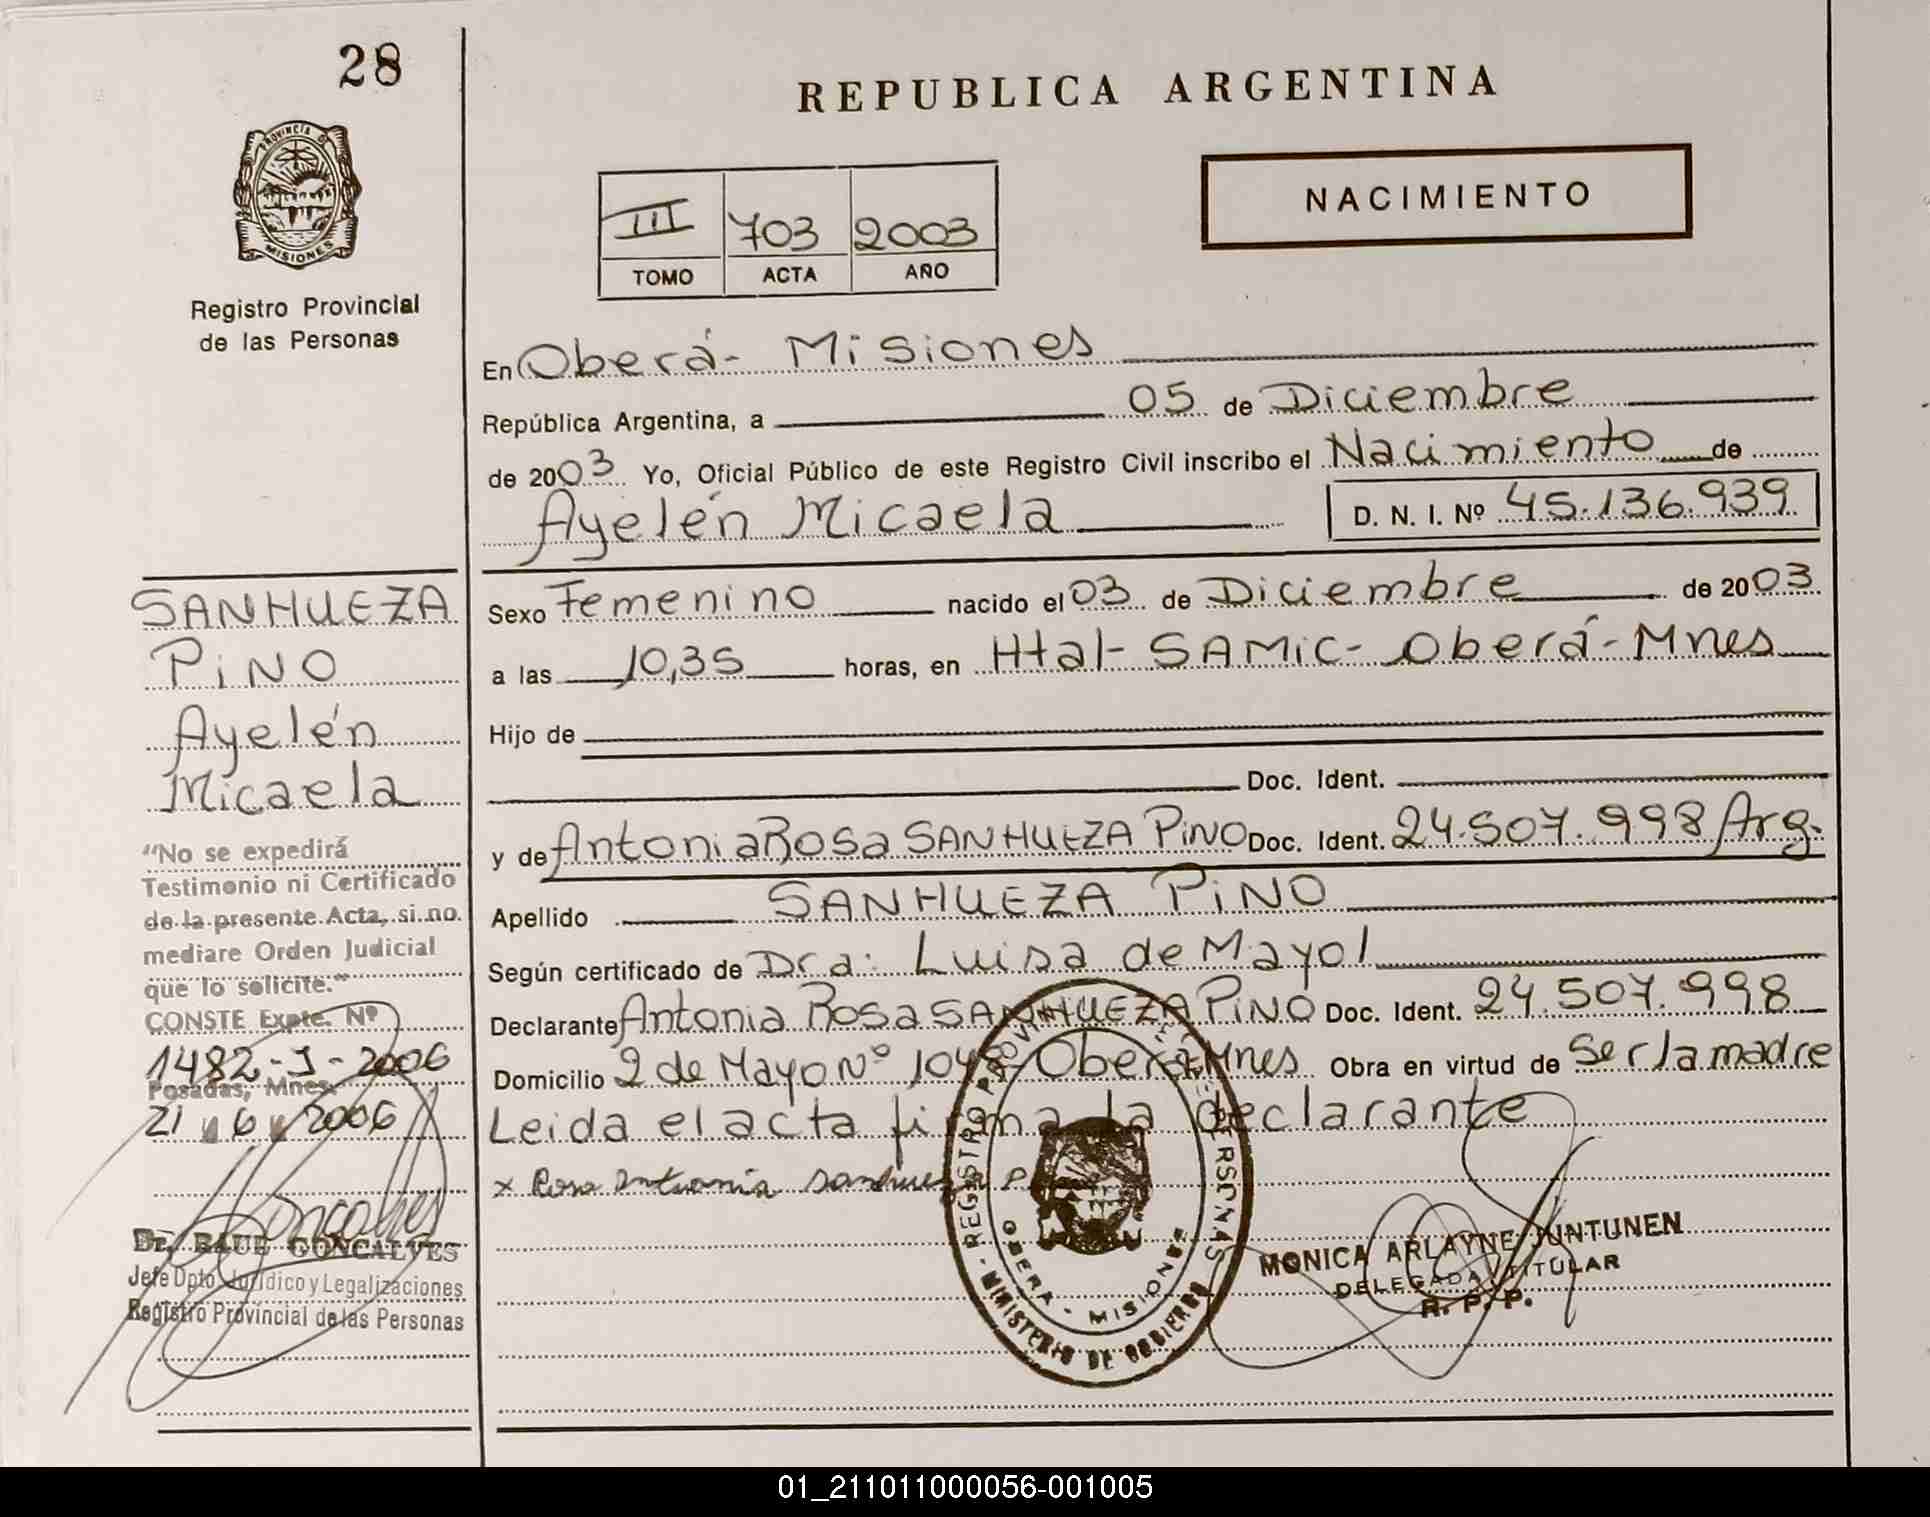 28
PROVINCIA DE
MISIONES
Registro Provincial
de las Personas
SANHUEZA
PiNO
Ayelén
Micaela
"No se expedirá
Testimonio ni Certificado
de la presente Acta, si no
mediare Orden Judicial
que lo solicite."
CONSTE Expte. Nº
1482-J-2006
Posadas, Mnes.
21 6 2006
Dr. RAUL GONCALVES
Jefe Dpto Jurídico y Legalizaciones
Registro Provincial de las Personas
REPUBLICA ARGENTINA
NACIMIENTO
III 703 2003
TOMO ACTA AÑO
En Oberá- Misiones
República Argentina, a 05 de Diciembre
de 2003 Yo, Oficial Público de este Registro Civil inscribo el Nacimiento de
Ayelén Micaela D. N. I. Nº 45.136.939
Sexo Femenino nacido el 03 de Diciembre de 2003
a las 10,35 horas, en Htal- SAMIC- Oberá-Mnes
Hijo de
Doc. Ident.
y de Antonia Rosa SANHUEZA PiNO Doc. Ident. 24.507.998 Arg.
Apellido SANHUEZA PiNO
Según certificado de Dra: Luisa de Mayol
Declarante Antonia Rosa SANHUEZA PiNO Doc. Ident. 24.507.998
Domicilio 2 de Mayo Nº Oberá Mnes Obra en virtud de Ser la madre
Leida el acta firma la declarante
x Rosa Antonia Sanhueza P
REGISTRO PROVINCIAL DE LAS PERSONAS
OBERA - MISIONES
MINISTERIO DE GOBIERNO
MONICA ARLAYNE JUNTUNEN
DELEGADA TITULAR
R. P. P.
01_211011000056-001005